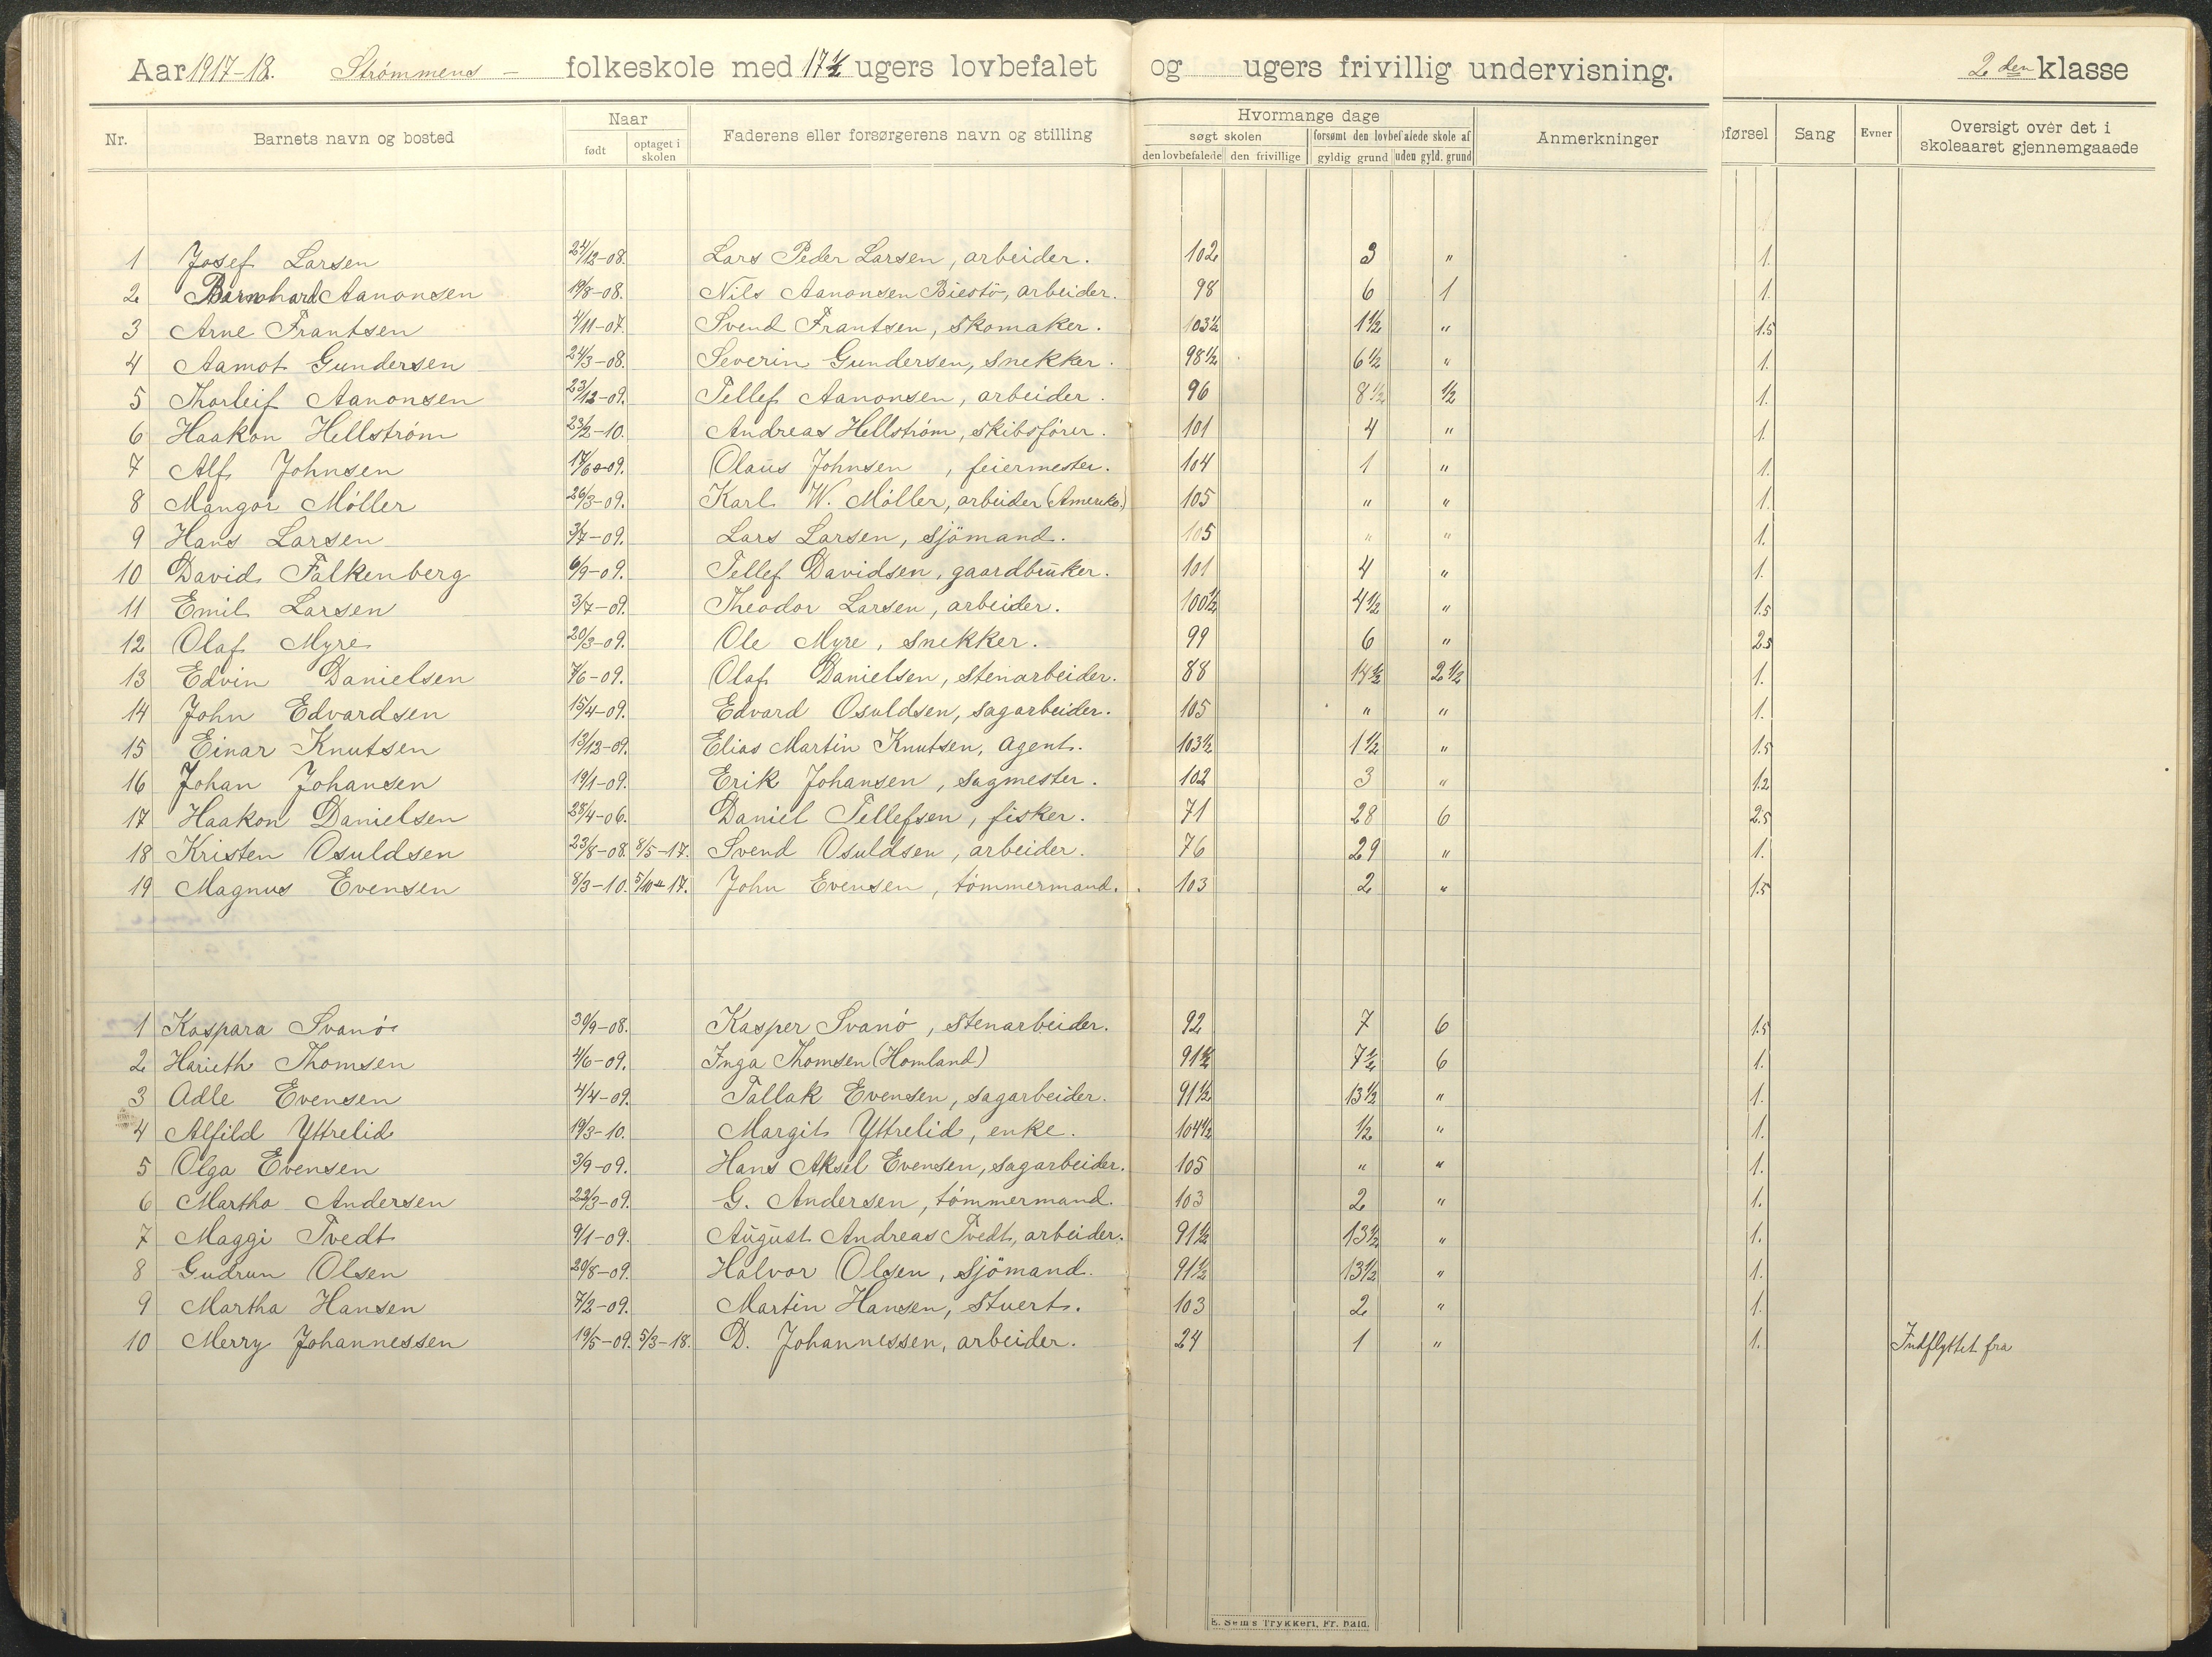 Aar 1917-18. Strømmens - folkeskole med 17 ½ ugers lovbefalet og ugers frivillig undervisning. 2 den klasse
Nr. Barnets navn og bosted Naar født optaget i skolen Faderens eller forsørgerens navn og stilling Hvormange dage søgt skolen den lovbefalede den frivillige forsømt den lovbefalede skole af gyldig grund uden gyld. grund Anmerkninger førsel Sang Evner Oversigt over det i skoleaaret gjennemgaaede
1 Josef Larsen 24/12-08. Lars Peder Larsen, arbeider. 102 3 " 1.
2 Barnhard Aanonsen 19/8-08. Nils Aanonsen Biestö, arbeider. 98 6 1 1.
3 Arne Frantsen 4/11-07. Svend Frantsen, skomaker. 103½ 1½ " 1.5
4 Aamot Gundersen 24/3-08. Severin Gundersen, snekker. 98½ 6½ " 1.
5 Thorleif Aanonsen 23/12-09. Tellef Aanonsen, arbeider. 96 8½ ½ 1.
6 Haakon Hellström 23/2-10. Andreas Hellström, skibsfører. 101 4 " 1.
7 Alf Johnsen 17/6-09. Olaus Johnsen, feiermester. 104 1 " 1.
8 Mangor Möller 26/3-09. Karl W. Möller, arbeider (Amerika.) 105 " " 1.
9 Hans Larsen 3/7-09. Lars Larsen, sjömand. 105 " " 1.
10 David Falkenberg 6/9-09. Tellef Davidsen, gaardbruker. 101 4 " 1.
11 Emil Larsen 3/7-09. Theodor Larsen, arbeider. 100½ 4½ " 1.5
12 Olaf Myre 20/3-09. Ole Myre, snekker. 99 6 " 2.5
13 Edvin Danielsen 7/6-09. Olaf Danielsen, stenarbeider. 88 14½ 2½ 1.
14 John Edvardsen 15/4-09. Edvard Osuldsen, sagarbeider. 105 " " 1.
15 Einar Knutsen 13/12-09. Elias Martin Knutsen, agent. 103½ 1½ " 1.5
16 Johan Johansen 19/1-09. Erik Johansen, sagmester. 102 3 " 1.2
17 Haakon Danielsen 28/4-06. Daniel Tellefsen, fisker. 71 28 6 2.5
18 Kristen Osuldsen 23/8-08. 8/5-17. Svend Osuldsen, arbeider. 76 29 " 1.
19 Magnus Evensen 8/3-10. 5/10-17. John Evensen, tömmermand. 103 2 " 1.5
1 Kaspara Svanö 30/9-08. Kasper Svanö, stenarbeider. 92 7 6 1.5
2 Harieth Thomsen 4/6-09. Inga Thomsen (Homland) 91½ 7½ 6 1.
3 Adle Evensen 4/4-09. Tallak Evensen, sagarbeider. 91½ 13½ " 1.
4 Alfild Yttrelid 19/3-10. Margit Yttrelid, enke. 104½ ½ " 1.
5 Olga Evensen 3/9-09. Hans Aksel Evensen, sagarbeider. 105 " " 1.
6 Martha Andersen 22/3-09. G. Andersen, tömmermand. 103 2 " 1.
7 Maggi Tvedt 9/1-09. August Andreas Tvedt, arbeider. 91½ 13½ " 1.
8 Gudrun Olsen 20/8-09. Halvor Olsen, sjömand. 91½ 13½ " 1.
9 Martha Hansen 7/2-09. Martin Hansen, stuert. 103 2 " 1.
10 Merry Johannessen 19/5-09. 5/3-18. D. Johannessen, arbeider. 24 1 " 1. Indflyttet fra
E. Sem's Trykkeri, Fr. hald.